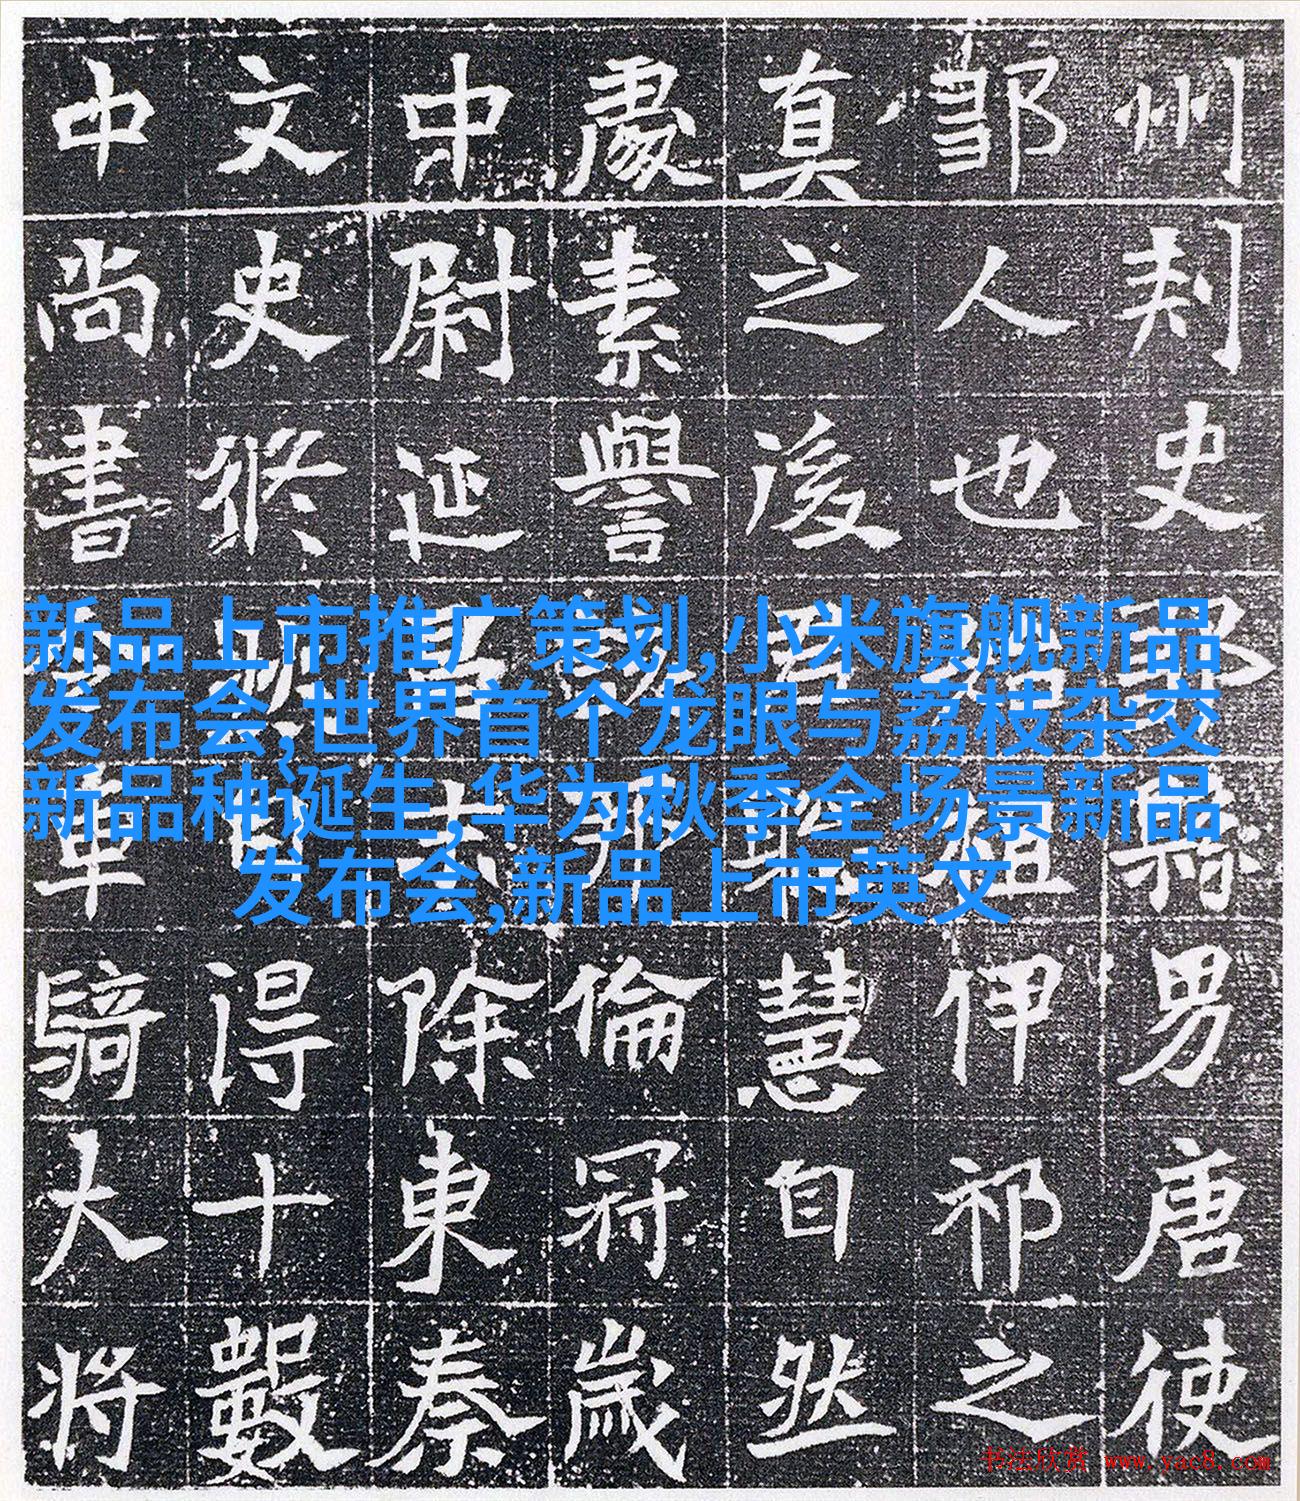 州刺史男唐使
鄒人也伊祁之
真之後慧自然
處素譽倫冠歲
中尉延除東秦
文史脩得十數
中尚書軍騎大將
新品上市推广策划,小米旗舰新品
发布会,世界首个龙眼与荔枝杂交
新品种诞生,华为秋季全场景新品
发布会,新品上市英文
书法欣赏 www.yac8.com